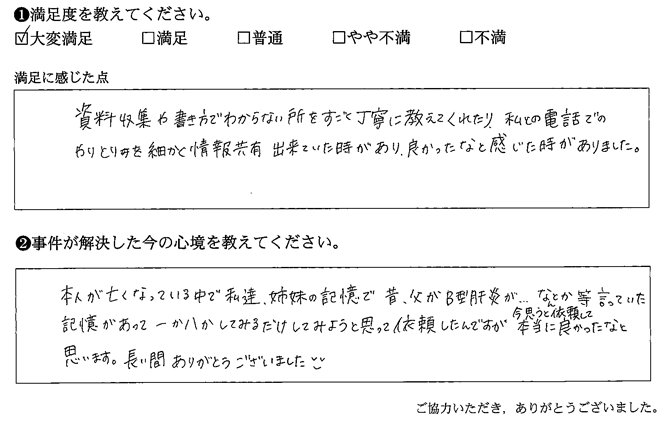 ❶満足度を教えてください。
☑大変満足 □満足 □普通 □やや不満 □不満
満足に感じた点
資料収集や書き方でわからない所をすごく丁寧に教えてくれたり、私との電話での
やりとり等を細かく情報共有 出来ていた時があり、良かったなと感じた時がありました。
❷事件が解決した今の心境を教えてください。
本人が亡くなっている中で私達、姉妹の記憶で 昔、父がB型肝炎が… なんとか等言っていた
記憶があって 一か八かしてみるだけしてみようと思って依頼したんですが 今思うと依頼して 本当に良かったなと
思います。長い間 ありがとうございました
ご協力いただき，ありがとうございました。